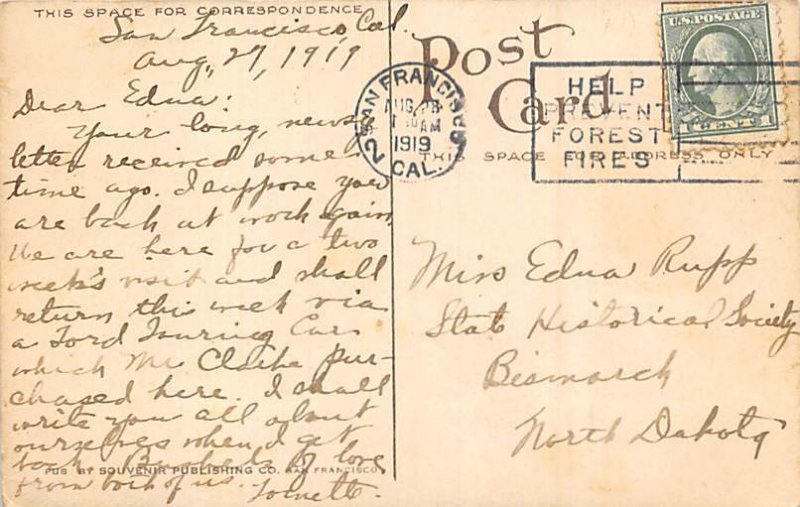 THIS SPACE FOR CORRESPONDENCE
San Francisco, Cal.
Aug, 27, 1919
Dear Edna:
Your long, newsy
letter received some
time ago. I suppose you
are back at work again.
We are here for a two
week's visit and shall
return this week via
a Ford Touring Car
which Mr. Clarke pur-
chased here. I shall
write you all about
ourselves when I get
back. Bushels of love
from both of us. Toinette.
PUB BY SOUVENIR PUBLISHING CO. SAN FRANCISCO
Post
Card
THIS SPACE FOR ADDRESS ONLY
SAN FRANCISCO
AUG 28
AM
1919
CAL.
2
HELP
PREVENT
FOREST
FIRES
U.S. POSTAGE
1 CENT 1
Miss Edna Rupp
State Historical Society
Bismarck
North Dakota